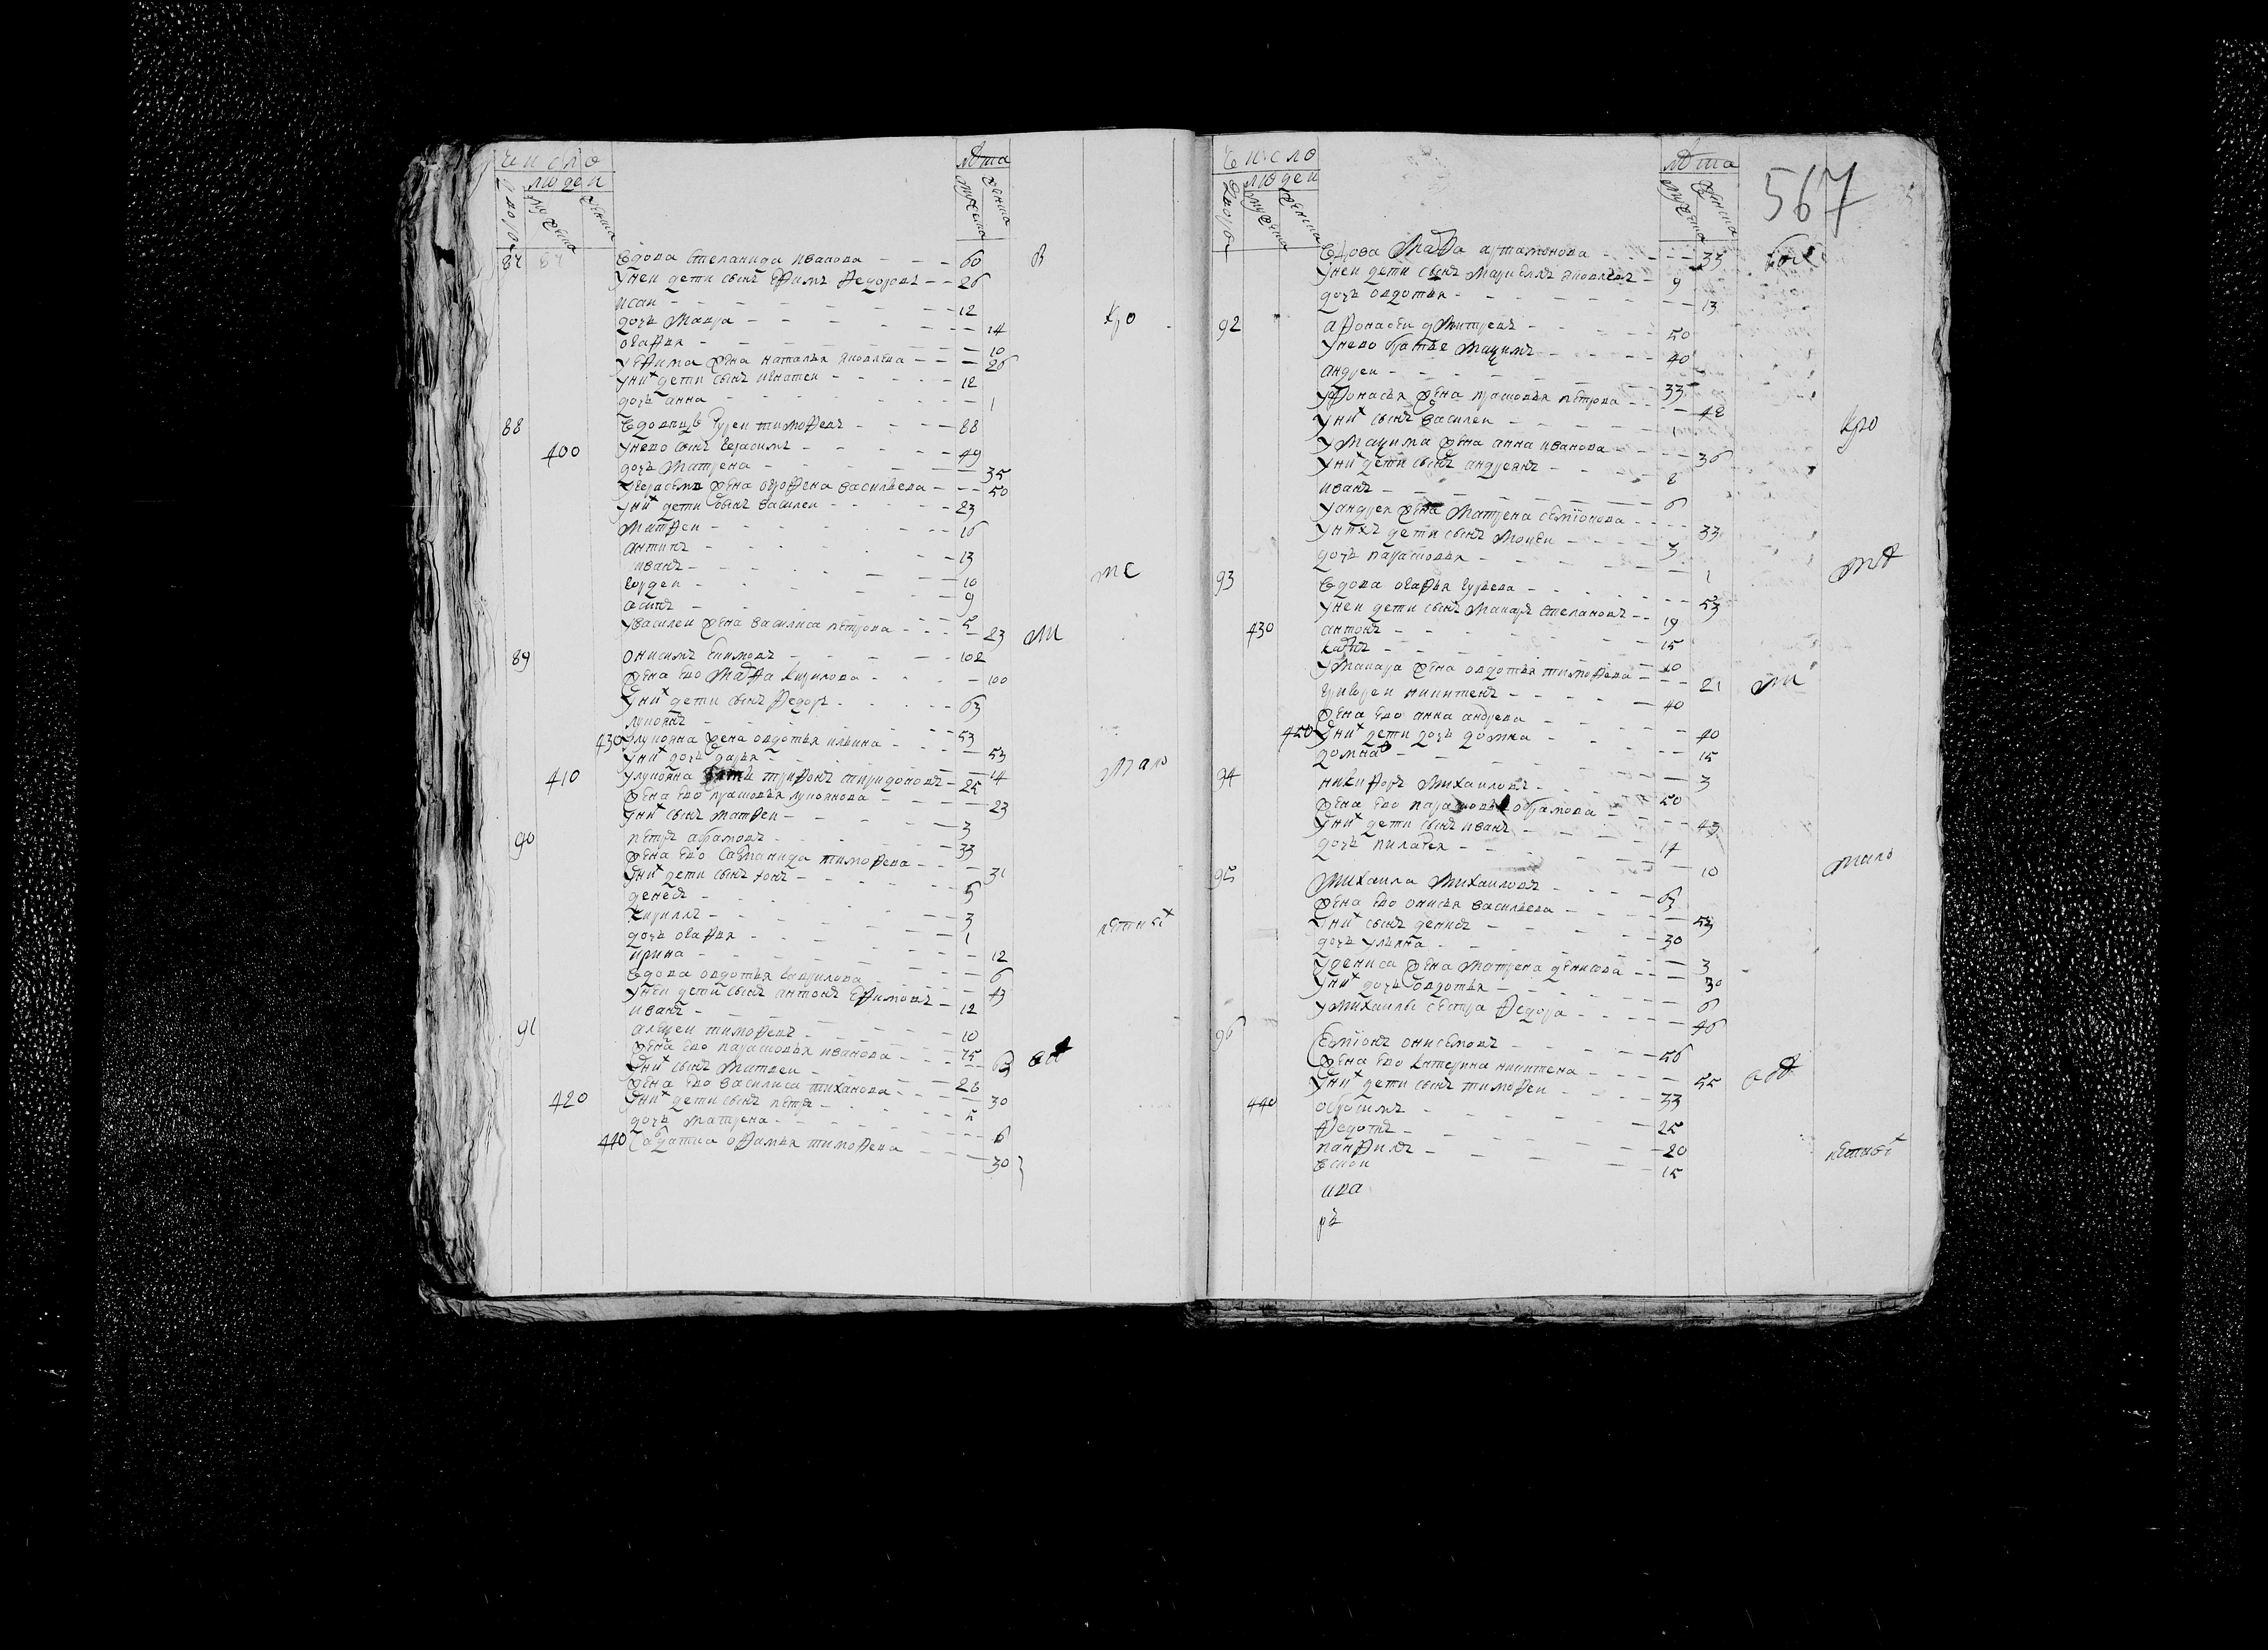 число
людеи
двороѵ
мужеска
женска
лѣта
мужеска
женска
87 87 вдова степанида иванова 60 в
у неи дети сынъ ефимъ федоровъ 26
исаи 12
дочь мавра 14 кро
огафья 10
у ефима жена наталья яковлева 26
у них дети сынъ игнатеи 12
дочь анна 1
88 вдовецъ гуреи тимофеевъ 88
400 у нево сынъ герасимъ 49
дочь матрена 35
у герасима жена огрофена васильева 50
у них дети сынъ василеи 23
матфеи 16
антипъ 13
иванъ 10 тс
гордеи 9
осипъ 5
у василеи жена василиса петрова 23 ми
89 онисимъ екимовъ 102
жена ево мафа кирилова 100
у них дети сынъ федоръ 63
лукоянъ 53
430 у лукояна жена овдотья ильина 53
у них дочь дарья 14
410 у лукояна зять трифонъ спиридоновъ 25 мало
жена ево прасковья лукоянова 23
у них сынъ матфеи 3
90 петръ абрамовъ 33
жена ево саломанида тимофеева 31
у них дети сынъ хонъ 5
денесъ 3
кирилъ 1 летных
дочь огафья 12
ирина 6
вдова овдотья гаврилова 43
у неи дети сынъ антонъ ефимовъ 12
иванъ 10
91 алѣѯеи тимофеевъ 75
жена ево парасковья иванова 63
у них сынъ матвеи 28
жена ево василиса тиханова 30
420 у них дети сынъ петръ 5
дочь матрена 6
440 салдатка офимья тимофеева 30
число
людеи
двороѵ
мужеска
женска
лѣта
мужеска
женска
567
вдова мафа артамонова 33
у неи дети сынъ маркеллъ яковлевъ 9
дочь овдотья 13
92 афонасеи дмитревъ 50
у нево братье маѯимъ 40
андреи 33
у афонасья жена прасковья петрова 48
у них сынъ василеи 1 кро
у маѯима жена анна иванова 36
у них дети сынъ андреянъ 8
иванъ 6
у андрея жена матрена семионова 33
у нихъ дети сынъ моисеи 3
дочь парасковья 1
93 вдова огафья гурьева 53
у неи дети сынъ макаръ степановъ 19
430 антонъ 15
карпъ 10
у макара жена овдотья тимофеева 21 ми
григореи никитенъ 40
жена ево анна андрева 40
450 у них дети дочь домна 15
домна 3
94 никифоръ михаиловъ 50
жена ево парасковья обрамова 43
у них дети сынъ иванъ 14
дочь пилагея 10
95 михаила михаиловъ 63 мало
жена ево онисья васильева 53
у них сынъ денисъ 30
дочь ульяна 3
у дениса жена матрена денисова 30
у них дочь овдотья 6
у михаилы сестра федора 46
96 семионъ онисимовъ 56
жена ево катерина никитена 55
у них дети сынъ тимофеи 33
440 обросимъ 25
федотъ 20
панфилъ 15
ева
рѣ